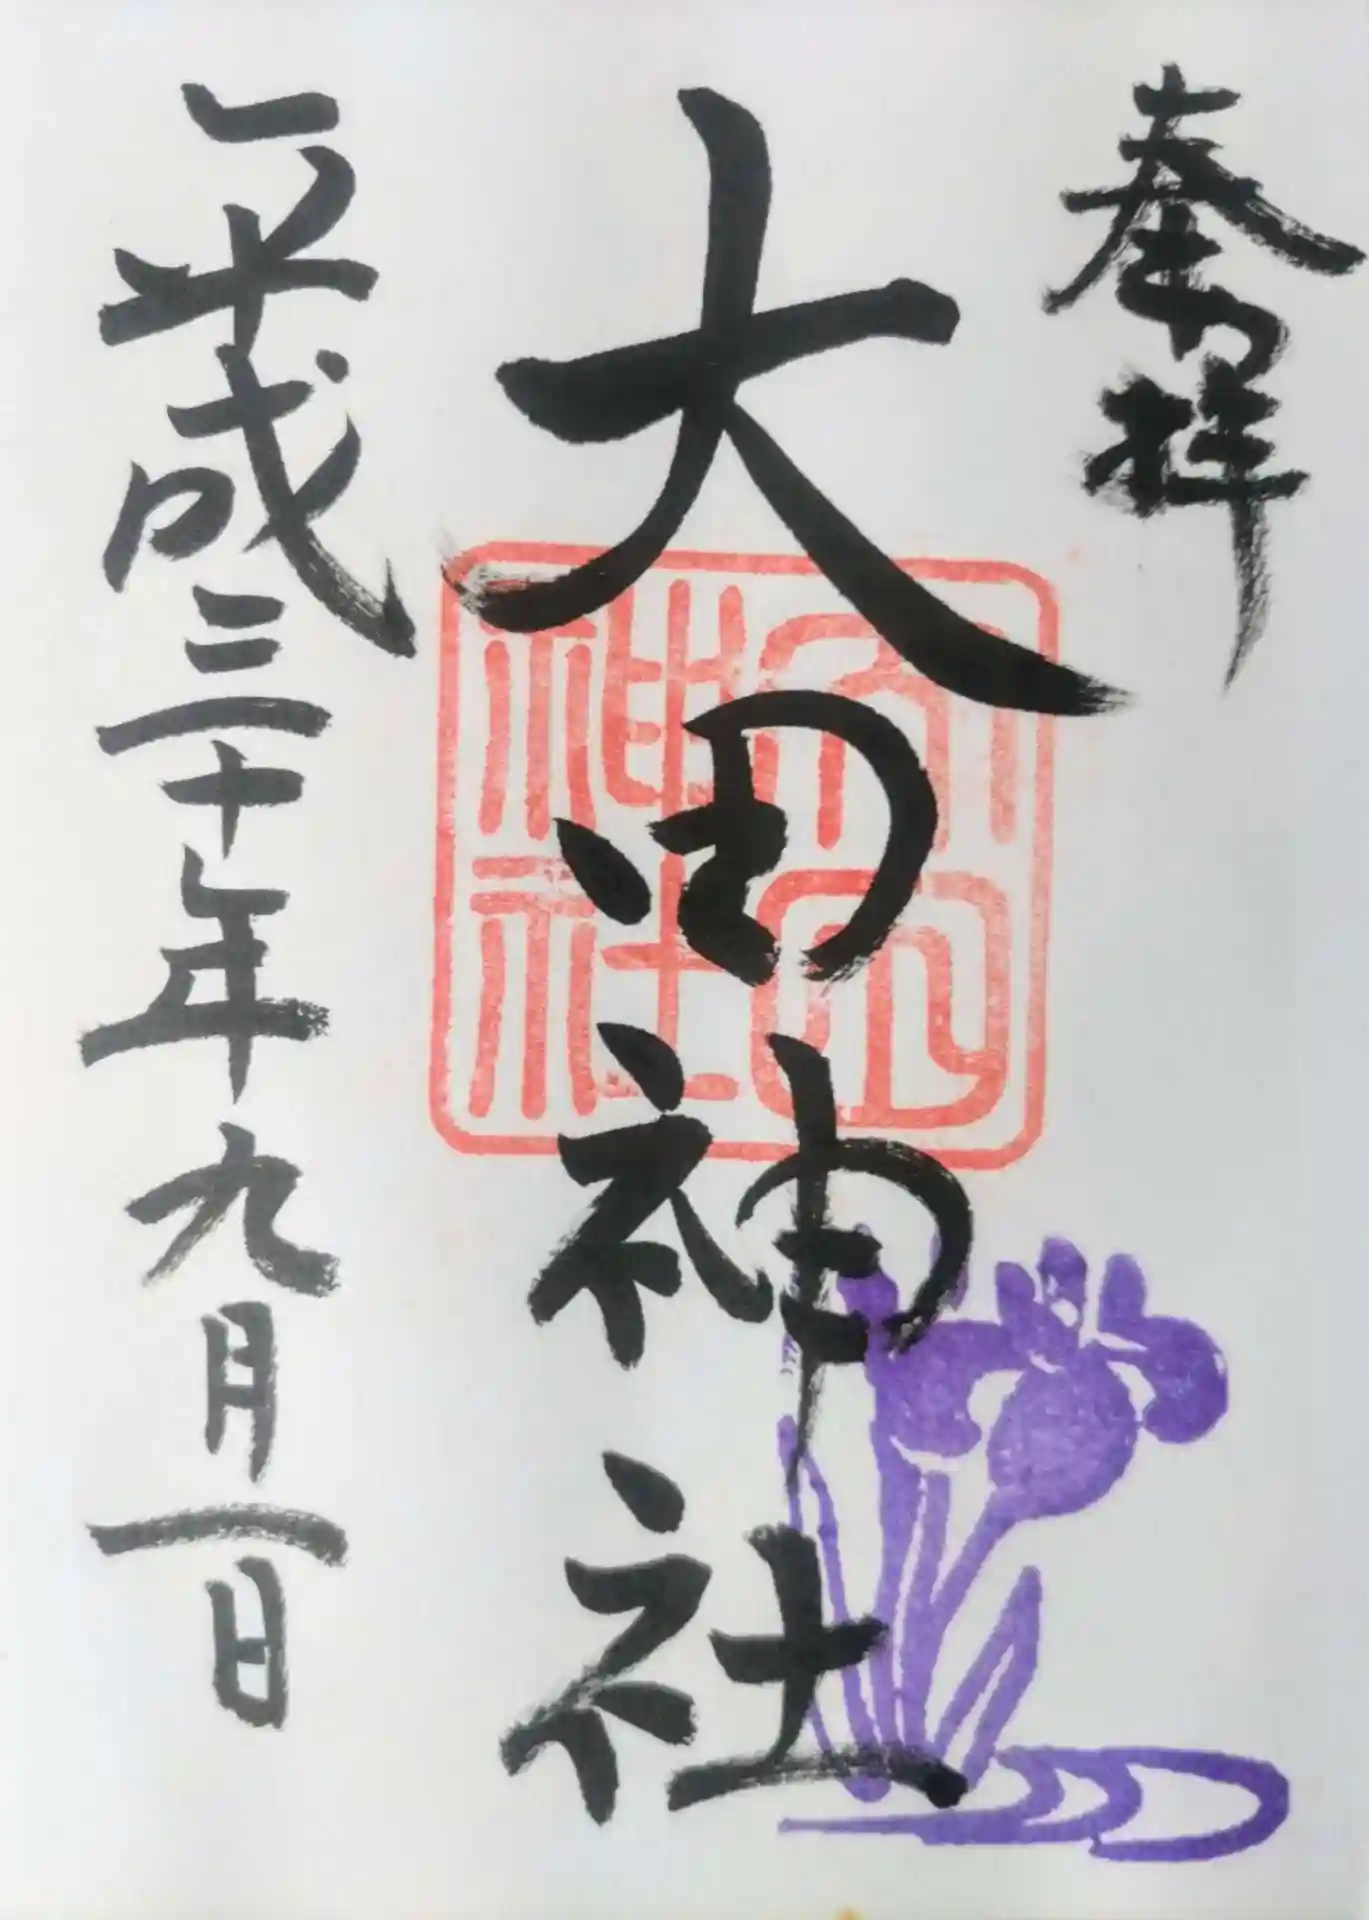 奉拝
大田神社
大田神社
平成三十年九月一日